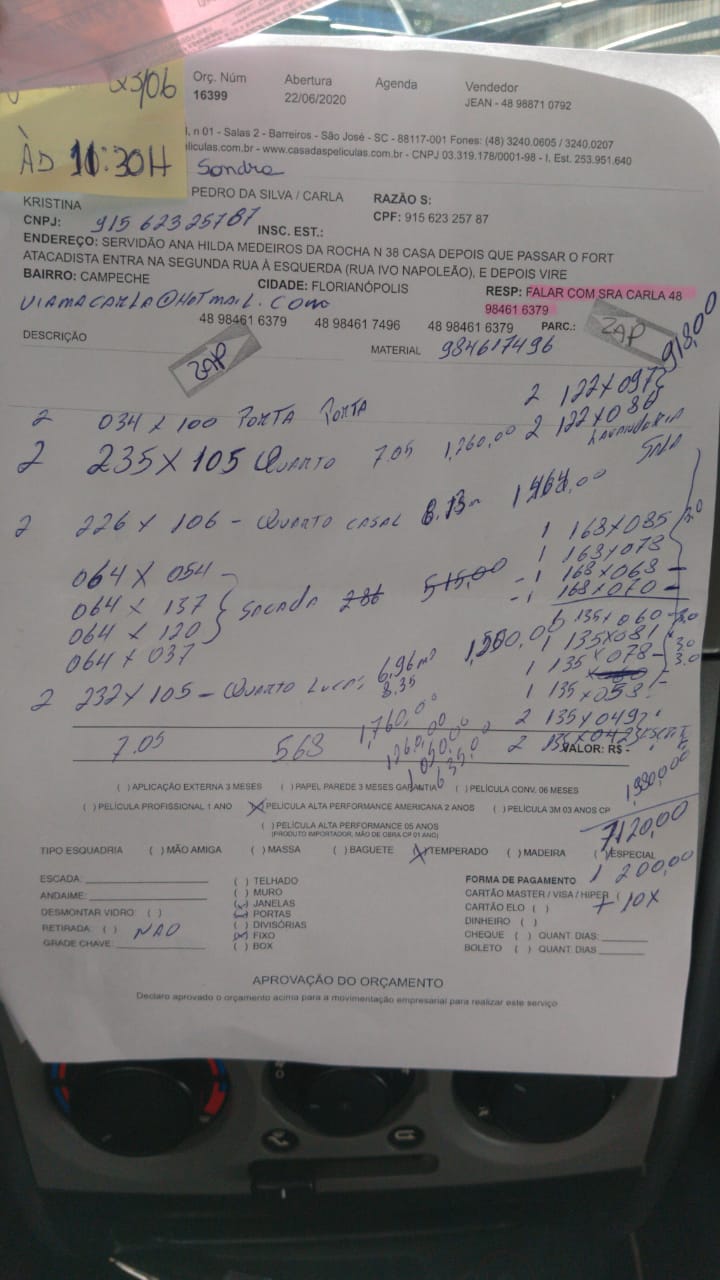 23/06
ÀS 11:30H
Orç. Núm Abertura Agenda Vendedor
16399 22/06/2020 JEAN - 48 98871 0792
n 01 - Salas 2 - Barreiros - São José - SC - 88117-001 Fones: (48) 3240.0605 / 3240.0207
liculas.com.br - www.casadaspeliculas.com.br - CNPJ 03.319.178/0001-98 - I. Est. 253.951.640
Sondra
PEDRO DA SILVA / CARLA RAZÃO S:
KRISTINA
CNPJ: 915 623 257 87 INSC. EST.: CPF: 915 623 257 87
ENDEREÇO: SERVIDÃO ANA HILDA MEDEIROS DA ROCHA N 38 CASA DEPOIS QUE PASSAR O FORT
ATACADISTA ENTRA NA SEGUNDA RUA À ESQUERDA (RUA IVO NAPOLEÃO), E DEPOIS VIRE
BAIRRO: CAMPECHE CIDADE: FLORIANÓPOLIS RESP: FALAR COM SRA CARLA 48
98461 6379
VIAMACARLA@HOTMAIL.COM
48 98461 6379 48 98461 7496 48 98461 6379 PARC.: ZAP 918,00
DESCRIÇÃO ZAP MATERIAL 984617496
2 122X097
2 034 X 100 PORTA PORTA
2 122X086
LAVANDERIA
2 235X105 QUARTO 7.05 1,260,00
SALA
2 226 X 106 - QUARTO CASAL 8.13m 1,464,00
1 168X085
1 168X078
064 X 054
1 168X068
064 X 137 SACADA 286 515,00
1 168X070
064 X 120
064 X 037
6 135X060
1 135X081
1 135X078
2 232X105 - QUARTO LUCAS 6,96m² 1,550,00
8,35
1 135X053
2 135X049
2 135X042
7.05 563 1,760,00
1260,00
1050,00
635,0
VALOR: R$
1,980,00
( ) APLICAÇÃO EXTERNA 3 MESES ( ) PAPEL PAREDE 3 MESES GARANTIA ( ) PELÍCULA CONV. 06 MESES
( ) PELÍCULA PROFISSIONAL 1 ANO (X) PELÍCULA ALTA PERFORMANCE AMERICANA 2 ANOS ( ) PELÍCULA 3M 03 ANOS CP
7120,00
( ) PELÍCULA ALTA PERFORMANCE 05 ANOS
(PRODUTO IMPORTADOR, MÃO DE OBRA CP 01 ANO)
TIPO ESQUADRIA ( ) MÃO AMIGA ( ) MASSA ( ) BAGUETE (X) TEMPERADO ( ) MADEIRA ( ) ESPECIAL
1 200,00
ESCADA: ( ) TELHADO FORMA DE PAGAMENTO
ANDAIME: ( ) MURO CARTÃO MASTER / VISA / HIPER (
DESMONTAR VIDRO: ( ) (X) JANELAS CARTÃO ELO ( ) 10X
RETIRADA: ( ) NAO (X) PORTAS DINHEIRO ( )
GRADE CHAVE: ( ) DIVISÓRIAS CHEQUE ( ) QUANT. DIAS:
(X) FIXO BOLETO ( ) QUANT. DIAS
( ) BOX
APROVAÇÃO DO ORÇAMENTO
Declaro aprovado o orçamento acima para a movimentação empresarial para realizar este serviço